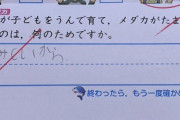 が子どもをうんで育て、メダカがたま
のは、何のためですか。
いから
終わったら、もう一度確か